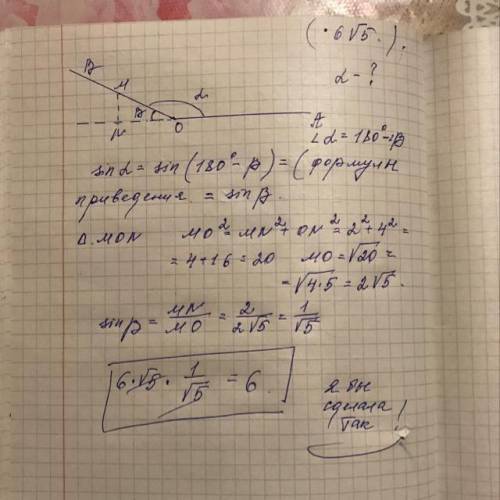 ( · 6√5 . ) .
α - ?
B
M
α
β
N
O
A
∠α = 180° - β
sin α = sin (180° - β) = ( формулы
приведения = sin β .
Δ MON MO² = MN² + ON² = 2² + 4² =
= 4 + 16 = 20 MO = √20 =
= √4·5 = 2√5 .
sin β = MN/MO = 2/2√5 = 1/√5
6·√5 · 1/√5 = 6 .
Я бы
сделала
так !